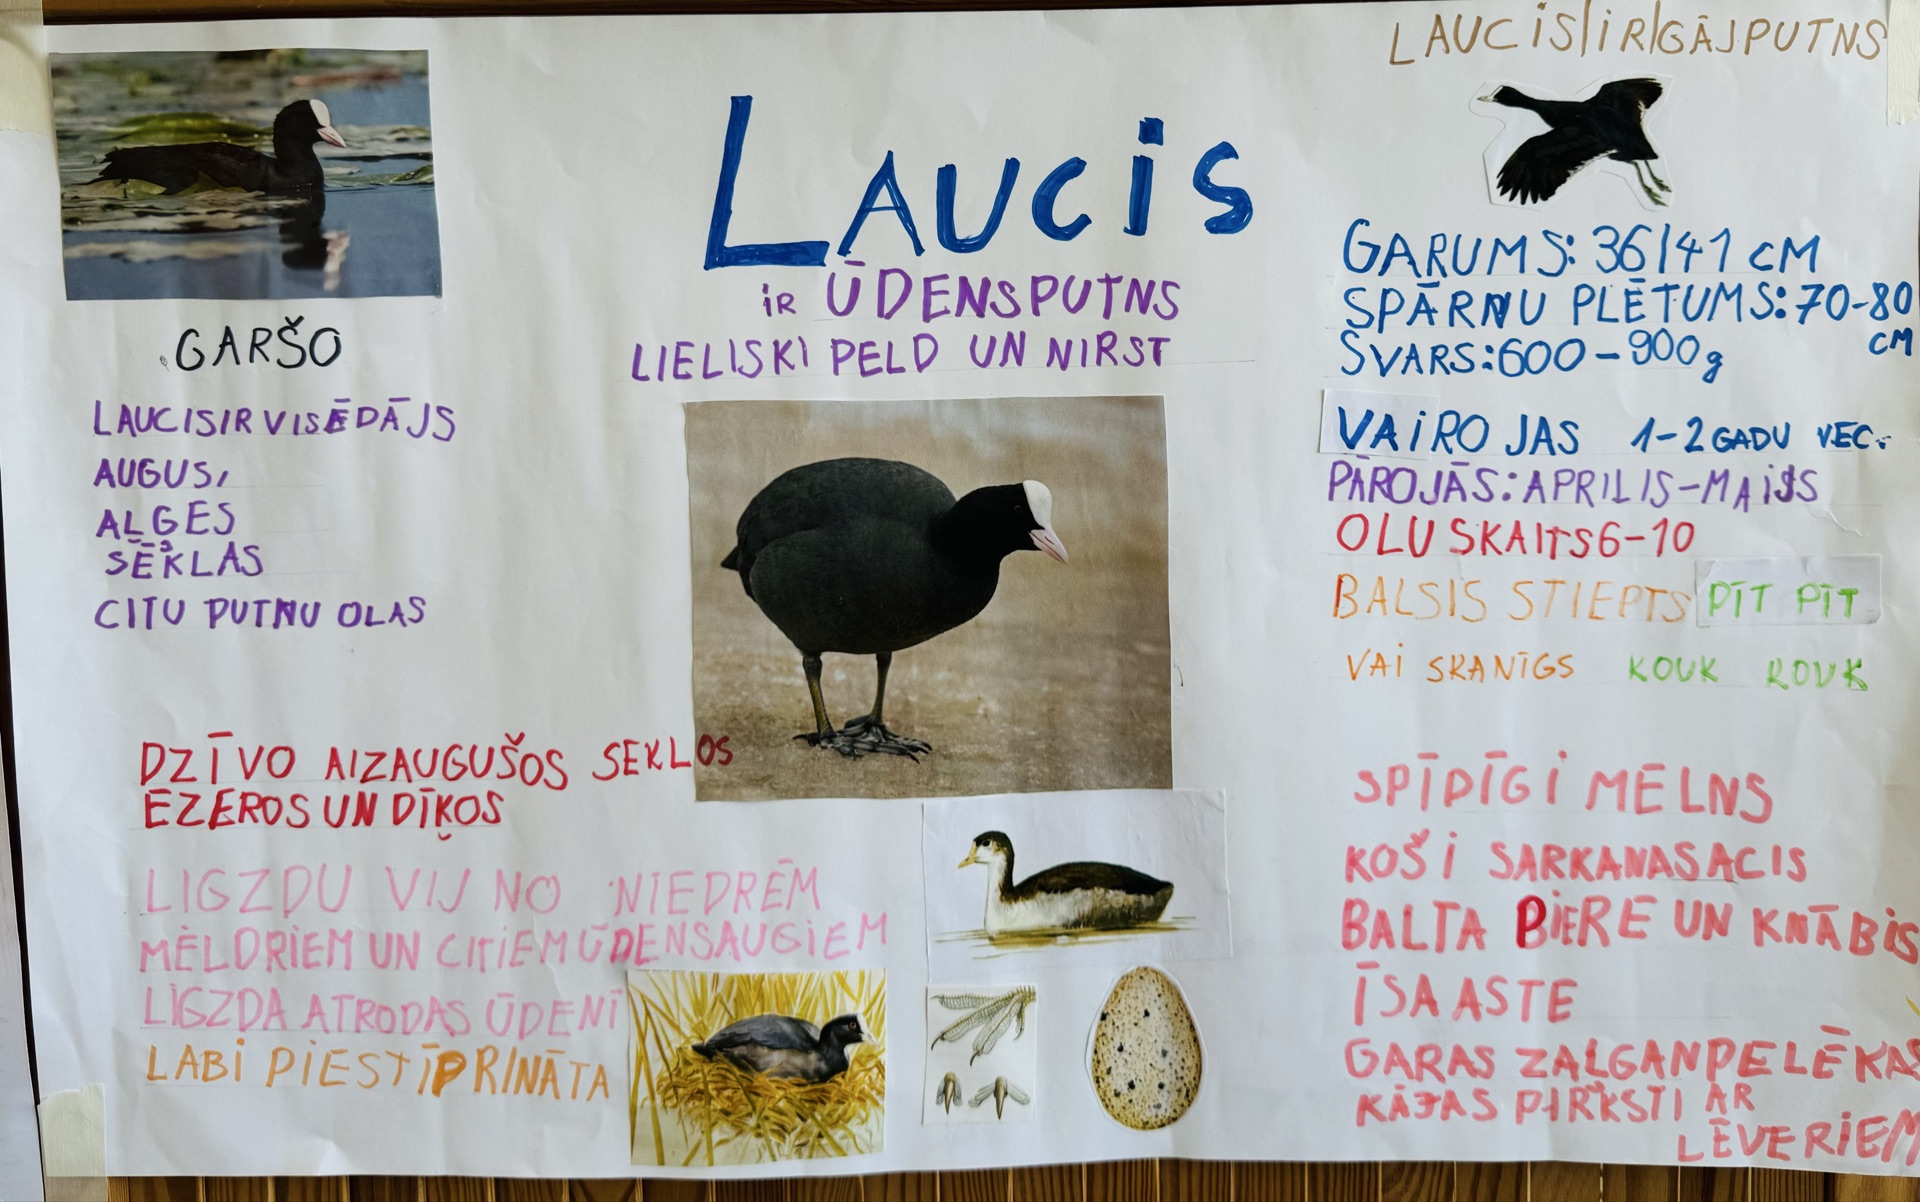 LAUCIS IR GĀJPUTNS
LAUCIS
IR ŪDENSPUTNS
LIELISKI PELD UN NIRST
GARŠO
LAUCIS IR VISĒDĀJS
AUGUS,
AĻĢES
SĒKLAS
CITU PUTNU OLAS
DZĪVO AIZAUGUŠOS SEKLOS
EZEROS UN DĪĶOS
LIGZDU VIJ NO NIEDRĒM
MĒLDRIEM UN CITIEM ŪDENSAUGIEM
LIGZDA ATRODAS ŪDENĪ
LABI PIESTĪPRINĀTA
GARUMS: 36/41 CM
SPĀRNU PLĒTUMS: 70-80
CM
SVARS: 600-900g
VAIROJAS 1-2 GADU VEC.
PĀROJĀS: APRILIS-MAIJS
OLU SKAITS 6-10
BALSIS STIEPTS PĪT PĪT
VAI SKANĪGS KOUK KOUK
SPĪDĪGI MĒLNS
KOŠI SARKANAS ACIS
BALTA PIERE UN KNĀBIS
ĪSA ASTE
GARAS ZAĻGANPELĒKAS
KĀJAS PIRKSTI AR
LĒVERIEM